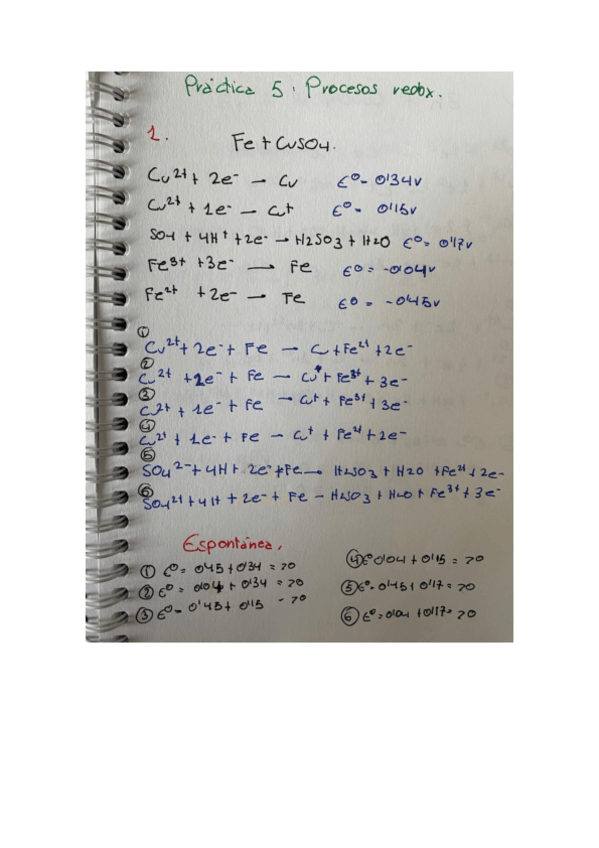 Práctica 5: Procesos redox.
1.
Fe + CuSO4.
Cu2+ + 2e- → Cu E0= 0'34v
Cu2+ + 1e- → Cu+ E0= 0'15v
SO4 + 4H+ + 2e- → H2SO3 + H2O E0= 0'17v
Fe3+ + 3e- → Fe E0 = -0'04v
Fe2+ + 2e- → Fe E0 = -0'45v
①
Cu2+ + 2e- + Fe → Cu + Fe2+ + 2e-
②
Cu2+ + 2e- + Fe → Cu + Fe3+ + 3e-
③
Cu2+ + 1e- + Fe → Cu+ + Fe3+ + 3e-
④
Cu2+ + 1e- + Fe → Cu+ + Fe2+ + 2e-
⑤
SO4 2- + 4H+ 2e- + Fe → H2SO3 + H2O + Fe2+ + 2e-
⑥
SO4 2+ + 4H + 2e- + Fe - H2SO3 + H2O + Fe3+ + 3e-
Espontánea.
① E0= 0'45 + 0'34 = >0
② E0= 0'04 + 0'34 = >0
③ E0= 0'45 + 0'15 = >0
④ E0 0'04 + 0'15 = >0
⑤ E0= 0'45 + 0'17 = >0
⑥ E0= 0'04 + 0'17 = >0